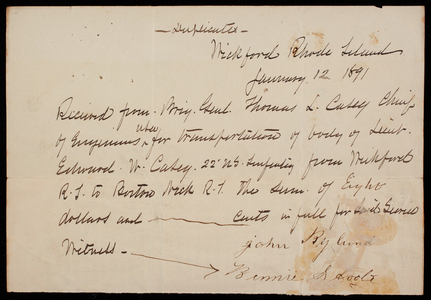 — Duplicate —
Wickford Rhode Island
January 12 1891
Received from Brig. Genl. Thomas L. Casey Chief
of Engineers USA, for transportation of body of Lieut.
Edward W. Casey. 22" US. Infantry from Wickford
R.I. to Boston Neck R.I. The sum of Eight
dollars and — cents in full for said Service
John
Witness —